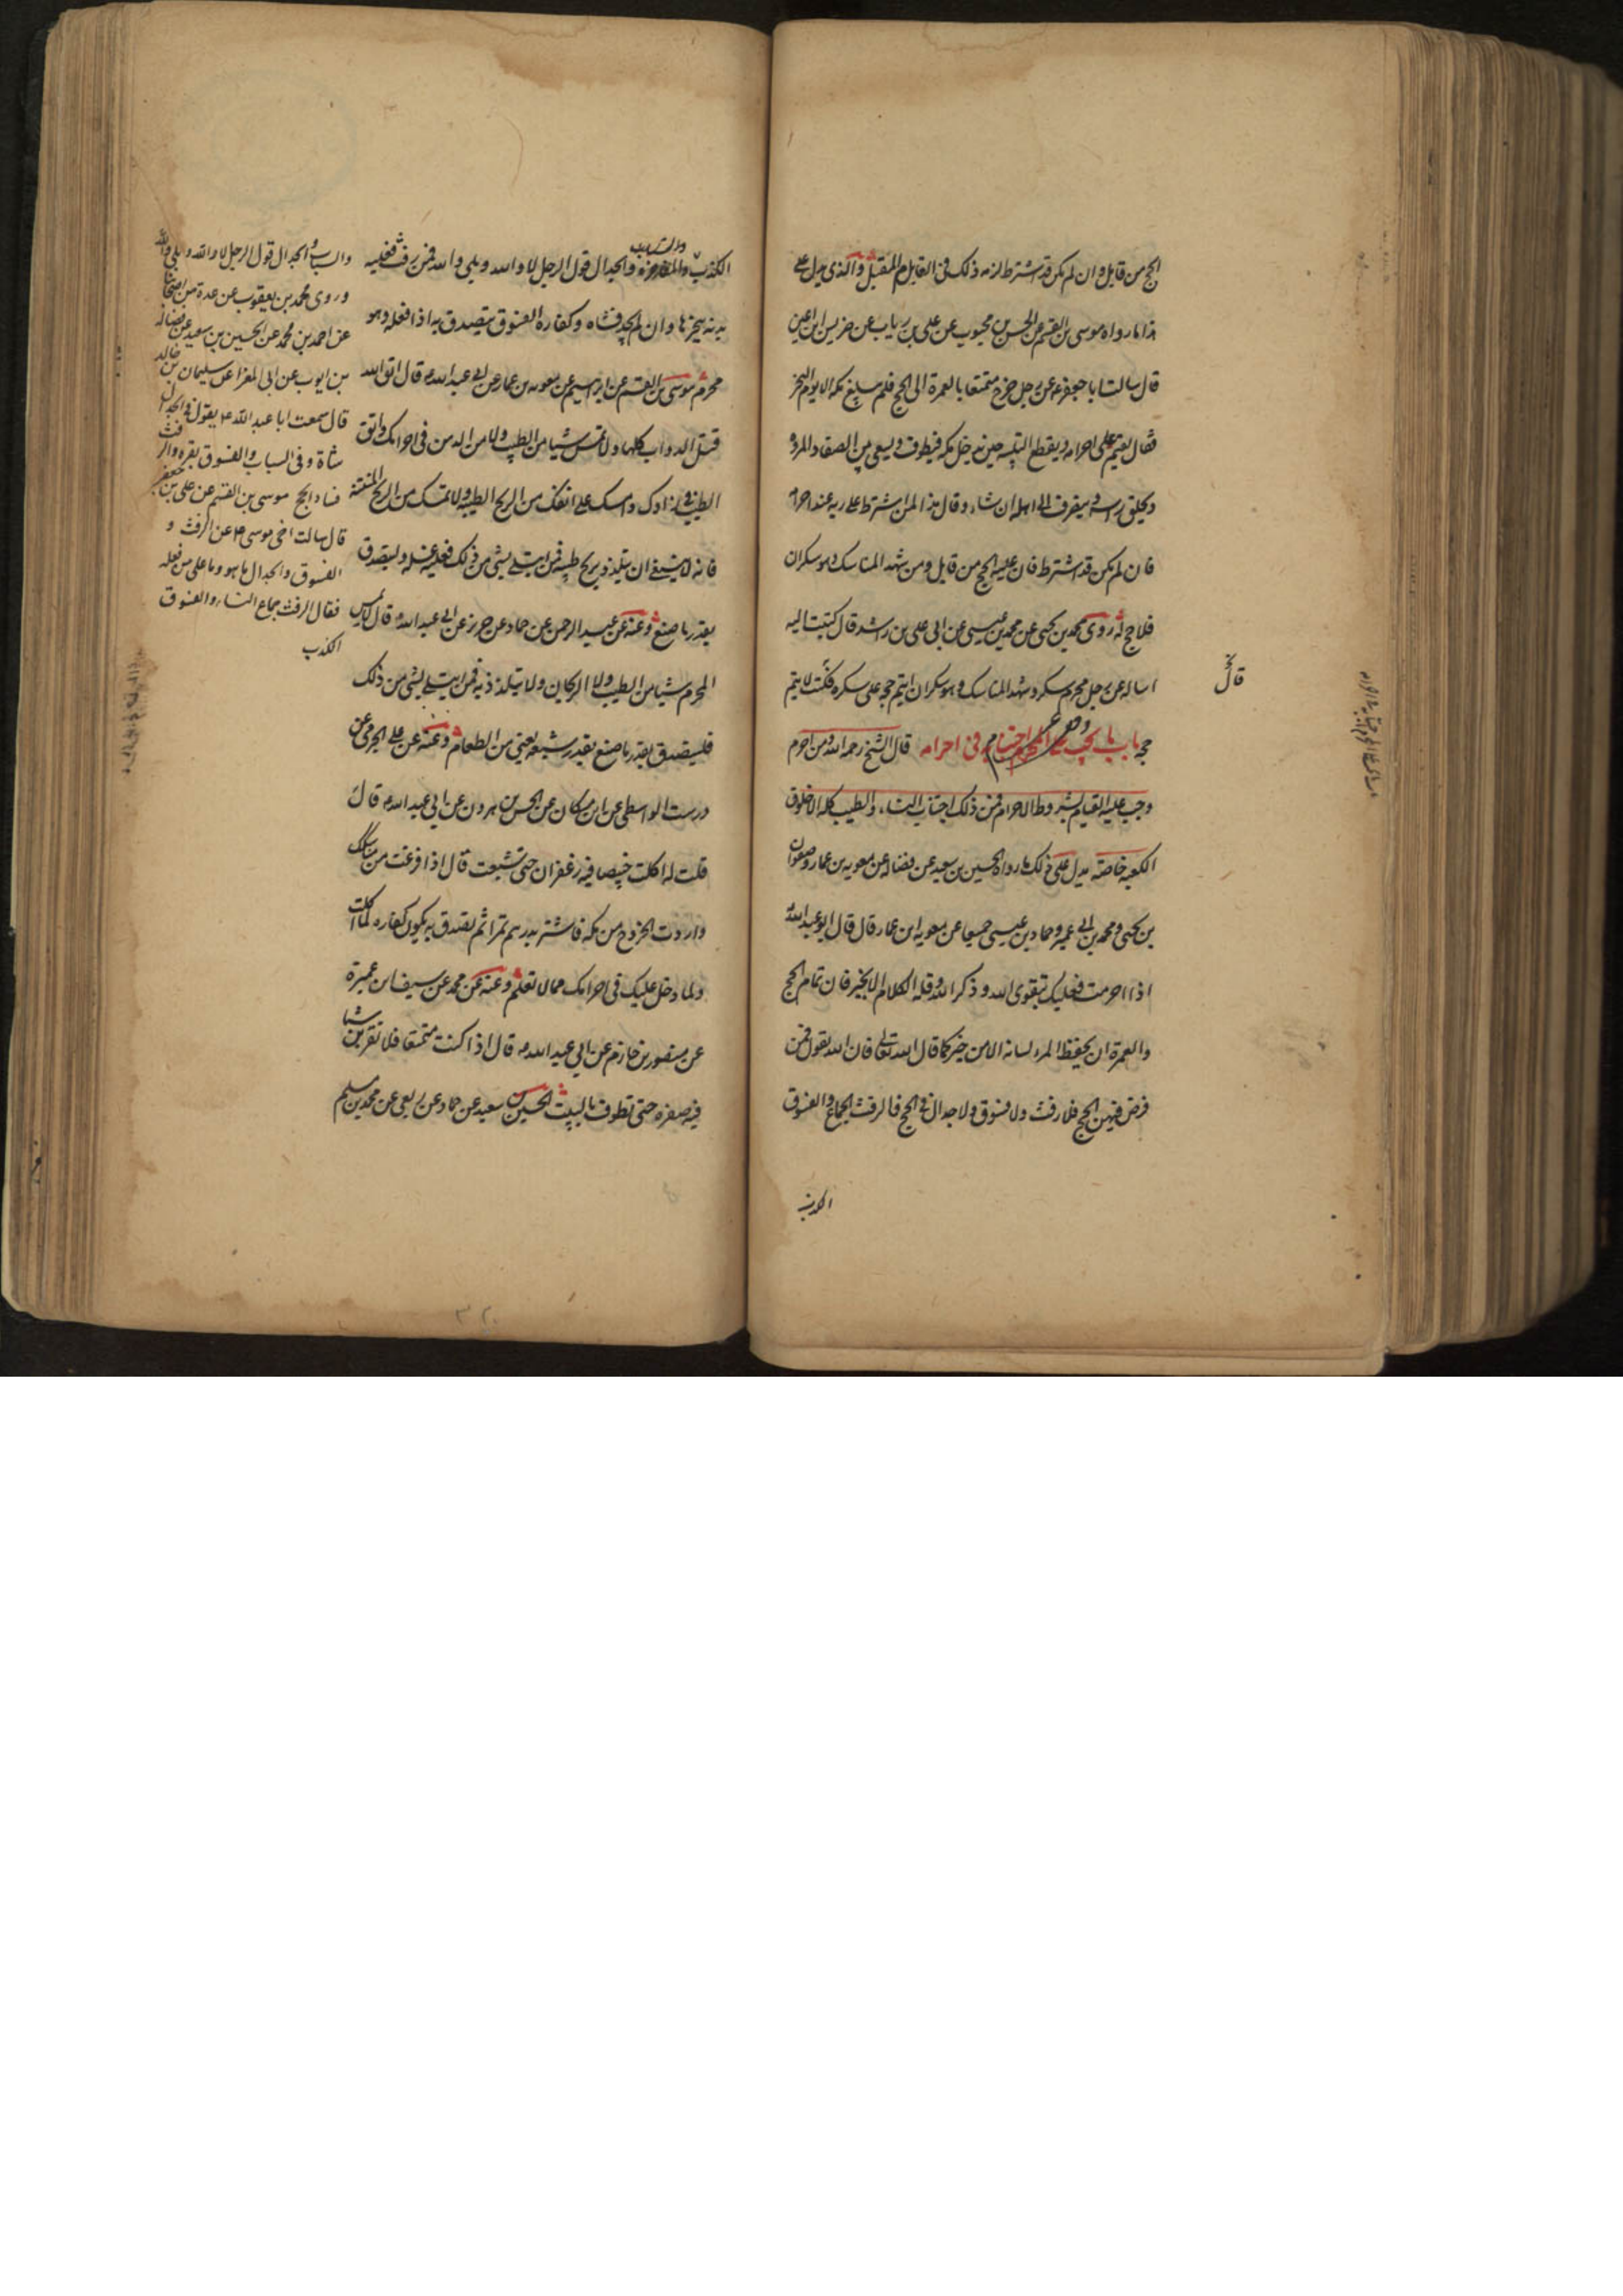 الحج من قابل وان لم يكن قد اشترط لزمه ذلك فى العام المقبل والذى يدل على
هذا ما رواه موسى بن القسم عن الحسن بن محبوب عن على بن رياب عن ضريس ابن اعين
قال سالت ابا جعفر ع عن رجل خرج متمتعا بالعمرة الى الحج فلم يبلغ مكه الا يوم النحر
فقال يقيم على احرامه ويقطع التلبيه حين يدخل مكه فيطوف ويسعى بين الصفا والمروة
ويحلق راسه وينصرف الى اهله ان شاء وقال هذا لمن اشترط على ربه عند احرامه
فان لم يكن قد اشترط فان عليه الحج من قابل ومن شهد المناسك وهو سكران
فلا حج له روى محمد بن يحيى عن محمد بن عيسى عن ابى على بن راشد قال كتبت اليه
اساله عن رجل محرم سكر وشهد المناسك وهو سكران ايتم حجه على سكره فكتب لا يتم
قال
حجه باب ما يجب على المحرم اجتنابه فى احرامه قال الشيخ رحمه الله ومن احرم
وجب عليه القيام بشروط الاحرام فمن ذلك اجتناب النساء والطيب كله الا خلوق
الكعبه خاصة يدل على ذلك ما رواه الحسين بن سعيد عن فضاله عن معويه بن عمار وصفوان
بن يحيى ومحمد بن ابى عمير وحماد بن عيسى جميعا عن معويه ابن عمار قال قال ابو عبد الله ع
اذا احرمت فعليك بتقوى الله وذكر الله وقله الكلام الا بخير فان تمام الحج
والعمرة ان يحفظ المرء لسانه الا من خير كما قال الله تعالى فان الله يقول فمن
فرض فيهن الحج فلا رفث ولا فسوق ولا جدال فى الحج فالرفث الجماع والفسوق
الكذب
الكذب والسباب والجدال قول الرجل لا والله وبلى والله فمن رفث فعليه
بدنه ينحرها وان لم يجد فشاه وكفارة الفسوق يتصدق به اذا فعله وهو
محرم موسى بن القسم عن ابراهيم عن معويه بن عمار عن ابى عبد الله ع قال اتق الله
قتل الدواب كلها ولا تمس شيا من الطيب ولا من الدهن فى احرامك واتق
الطيب فى زادك وامسك على انفك من الريح الطيبه ولا تمسك من الريح المنتنة
فانه لا ينبغى ان يتلذذ بريح طيبه فمن ابتلى بشى من ذلك فعليه غسله وليتصدق
بقدر ما صنع وعنه عن عبد الرحمن عن حماد عن حريز عن ابى عبد الله ع قال لا يمس
المحرم شيا من الطيب ولا الريحان ولا يتلذذ به فمن ابتلى بشى من ذلك
فليتصدق بقدر ما صنع بقدر شبعه يعنى من الطعام وعنه عن على الجرمى عن
درست الواسطى عن ابن مسكان عن الحسن بن هرون عن ابى عبد الله ع قال
قلت له اكلت خبيصا فيه زعفران حتى شبعت قال اذا فرغت من مناسكك
واردت الخروج من مكه فاشتر بدرهم تمرا ثم تصدق به يكون كفاره لما اكلت
ولما دخل عليك فى احرامك مما لا تعلم وعنه عن محمد عن سيف ابن عميرة
عن منصور بن حازم عن ابى عبد الله ع قال اذا كنت متمتعا فلا تقربن شيا
فيه صفره حتى تطوف بالبيت الحسين بن سعيد عن حماد عن ربعى عن محمد بن مسلم
والسباب والجدال قول الرجل لا والله وبلى والله
وروى محمد بن يعقوب عن عدة من اصحابنا
عن احمد بن محمد عن الحسين بن سعيد عن فضاله
بن ايوب عن ابى المغرا عن سليمان بن خالد
قال سمعت ابا عبد الله ع يقول فى الجدال
شاة وفى السباب والفسوق بقره والرفث
فساد الحج موسى بن القسم عن على بن جعفر
قال سالت اخى موسى ع عن الرفث و
الفسوق والجدال ما هو وما على من فعله
فقال الرفث جماع النساء والفسوق
الكذب